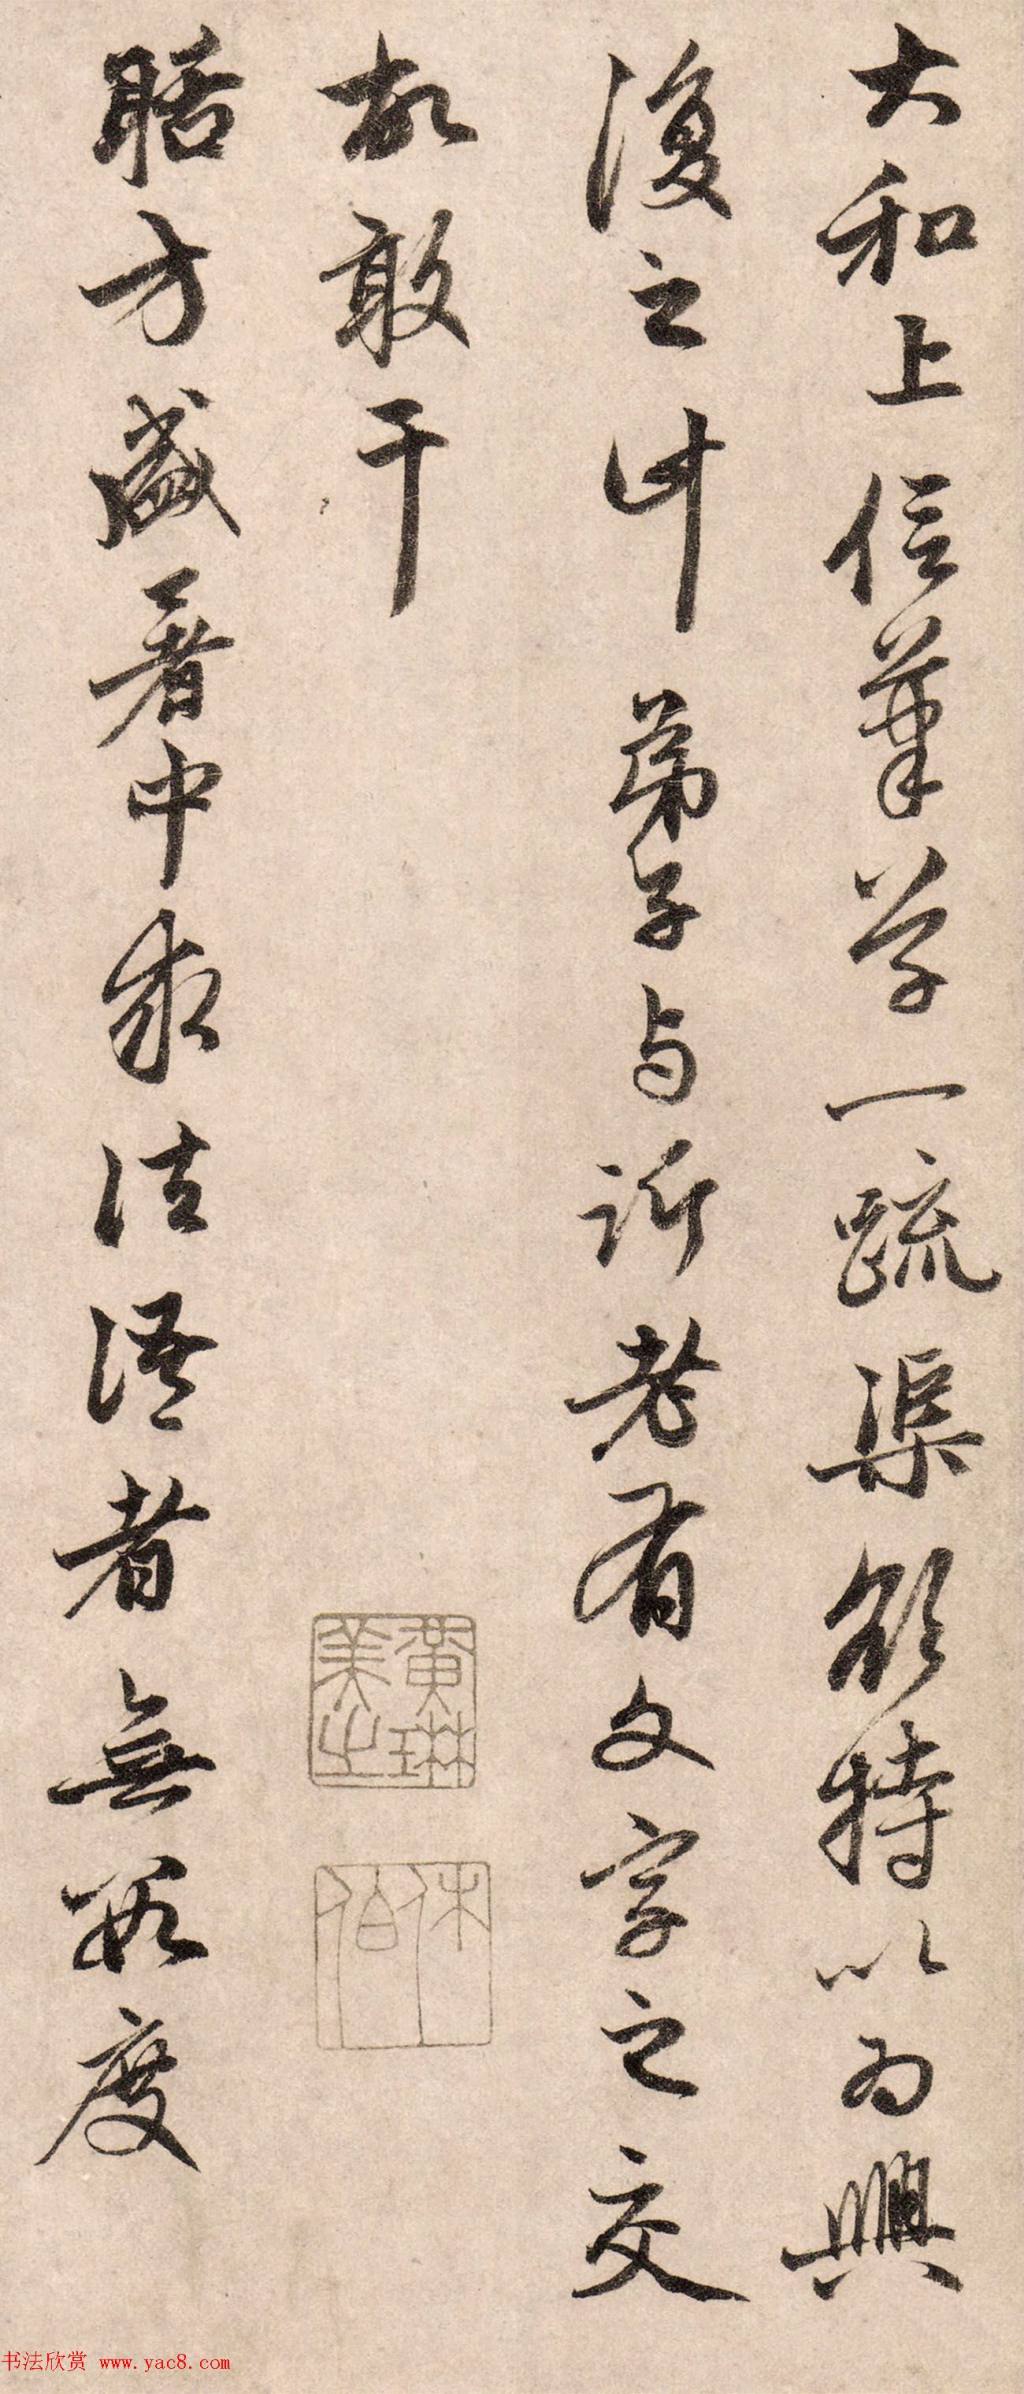 大和上信筆草一疏渠欲特以為興
復之計弟子与訢老有文字之交
故敢干
聒方盛暑中求法語者無數度
黃琳美之
休伯
书法欣赏 www.yac8.com